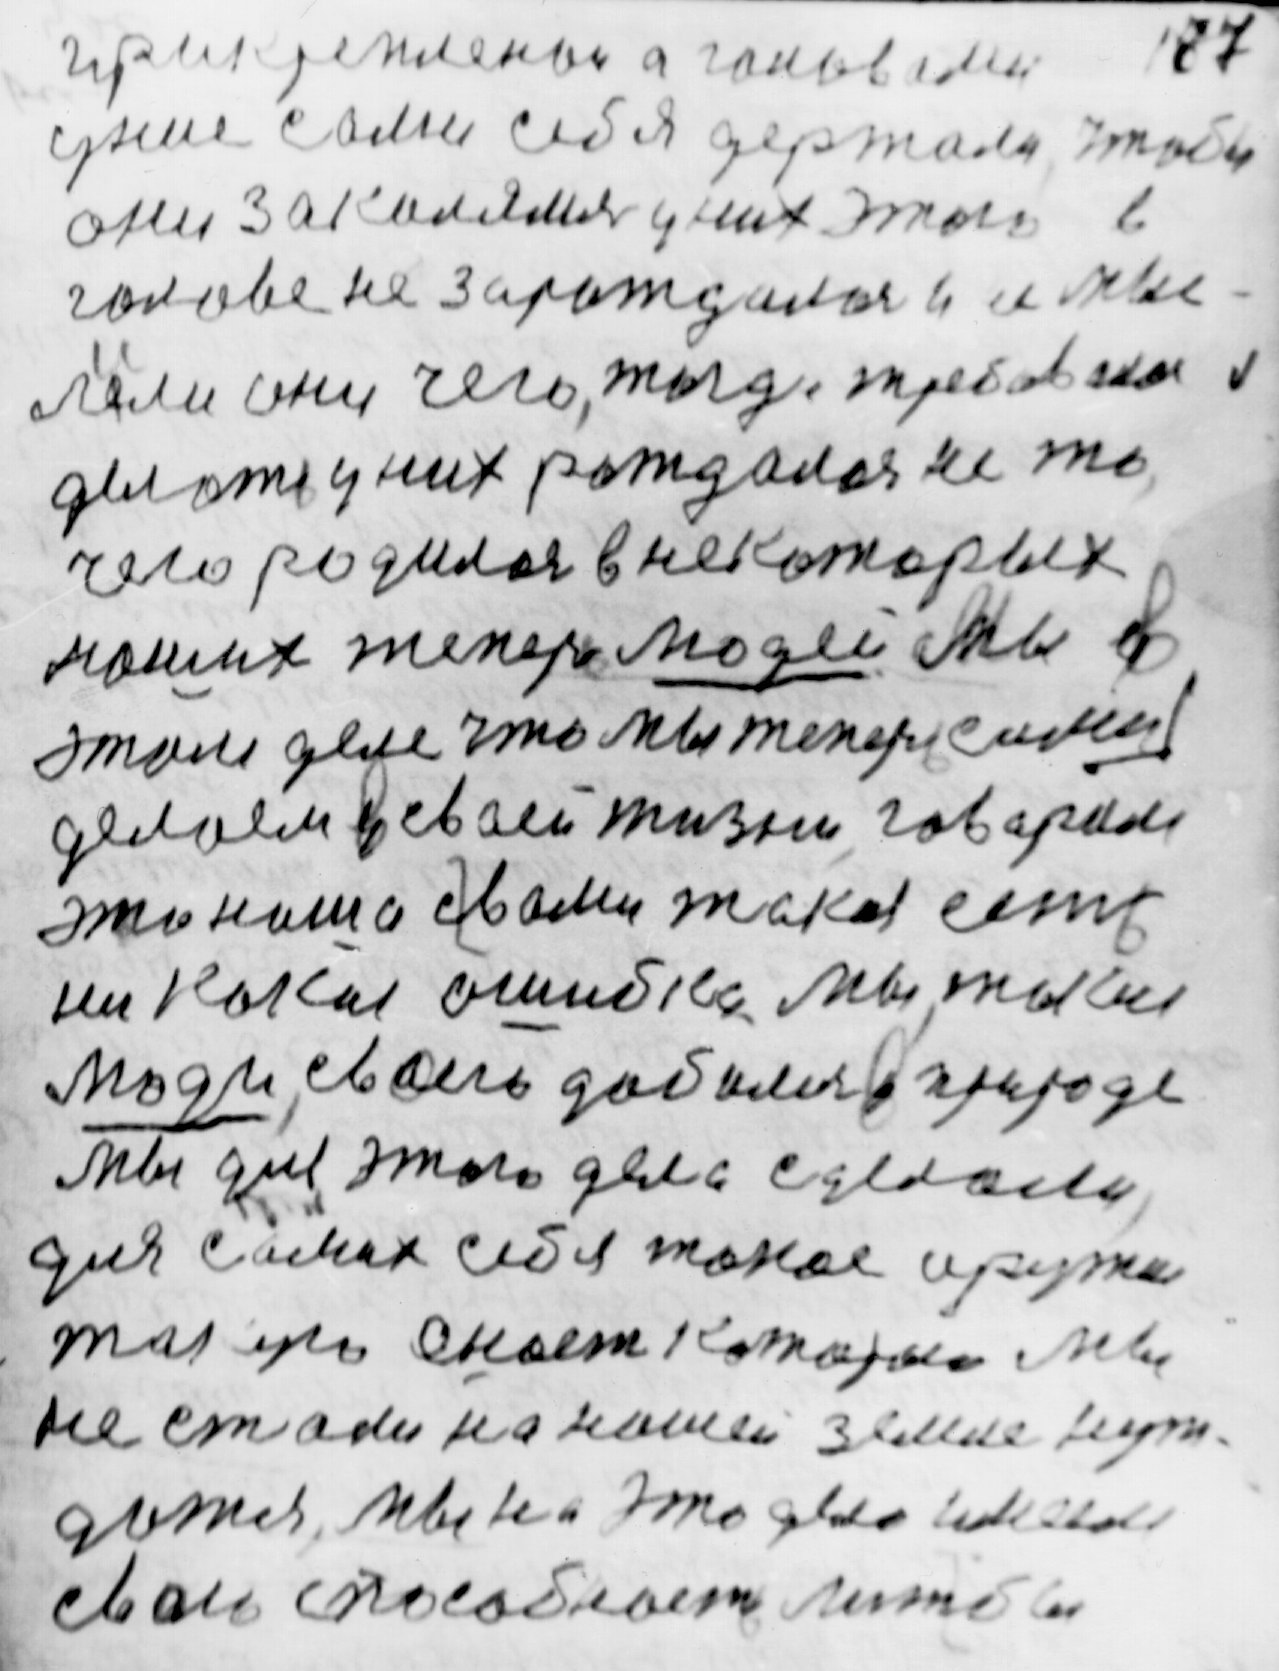 187
прикреплены а головами
уние сами себя держали, чтобы
они закалялися у них этого в
голове не зарождалося и и мы-
ляли они чего, тогда требовалося
делать у них рождалося не то,
чего родилося в некоторых
наших теперь людей Мы в
этом деле что мы теперь сами
делаем в своей жизни говорим
это наша с вами такая есть
ни какая ошибка, мы, такия
люди, своего добилися в природе
мы для этого дела сделали,
для самих себя такое
которого мы
не стали на нашей земле нуж-
датся, мы на это дело имеем
свою способность лишь бы